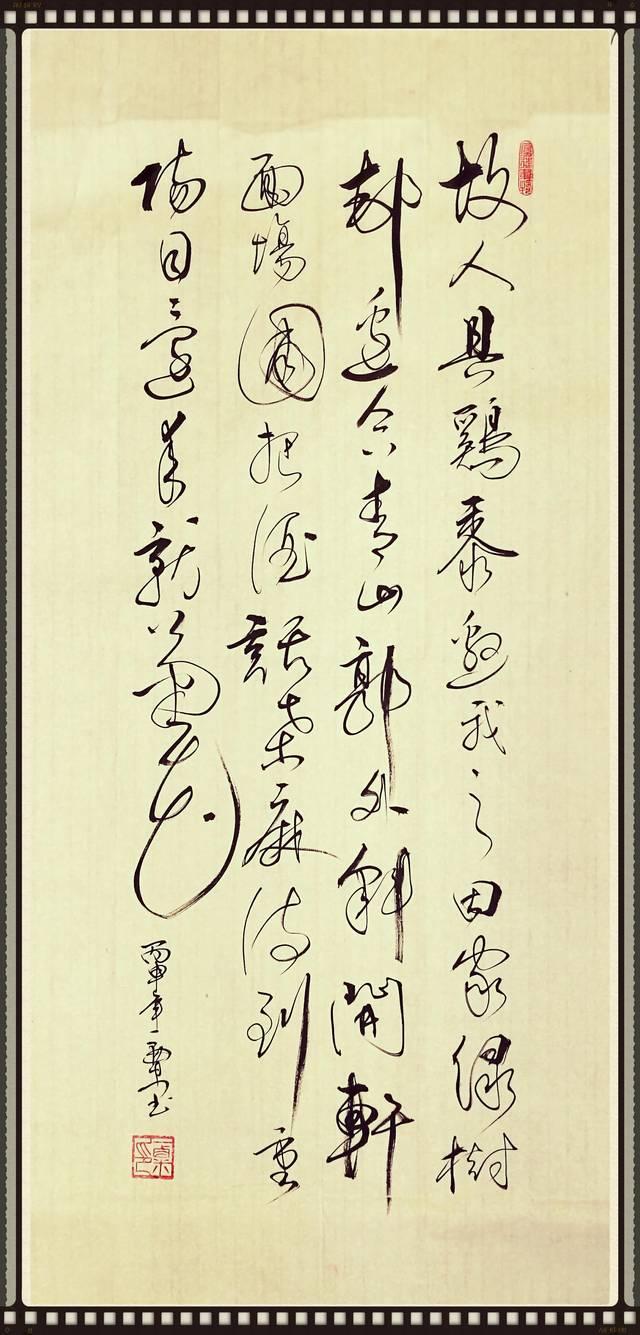 故人具鷄黍邀我之田家緑樹
邨邊合青山郭外斜開軒
面場圃把酒話桒麻待到重
陽日還來就菊花
丙申年